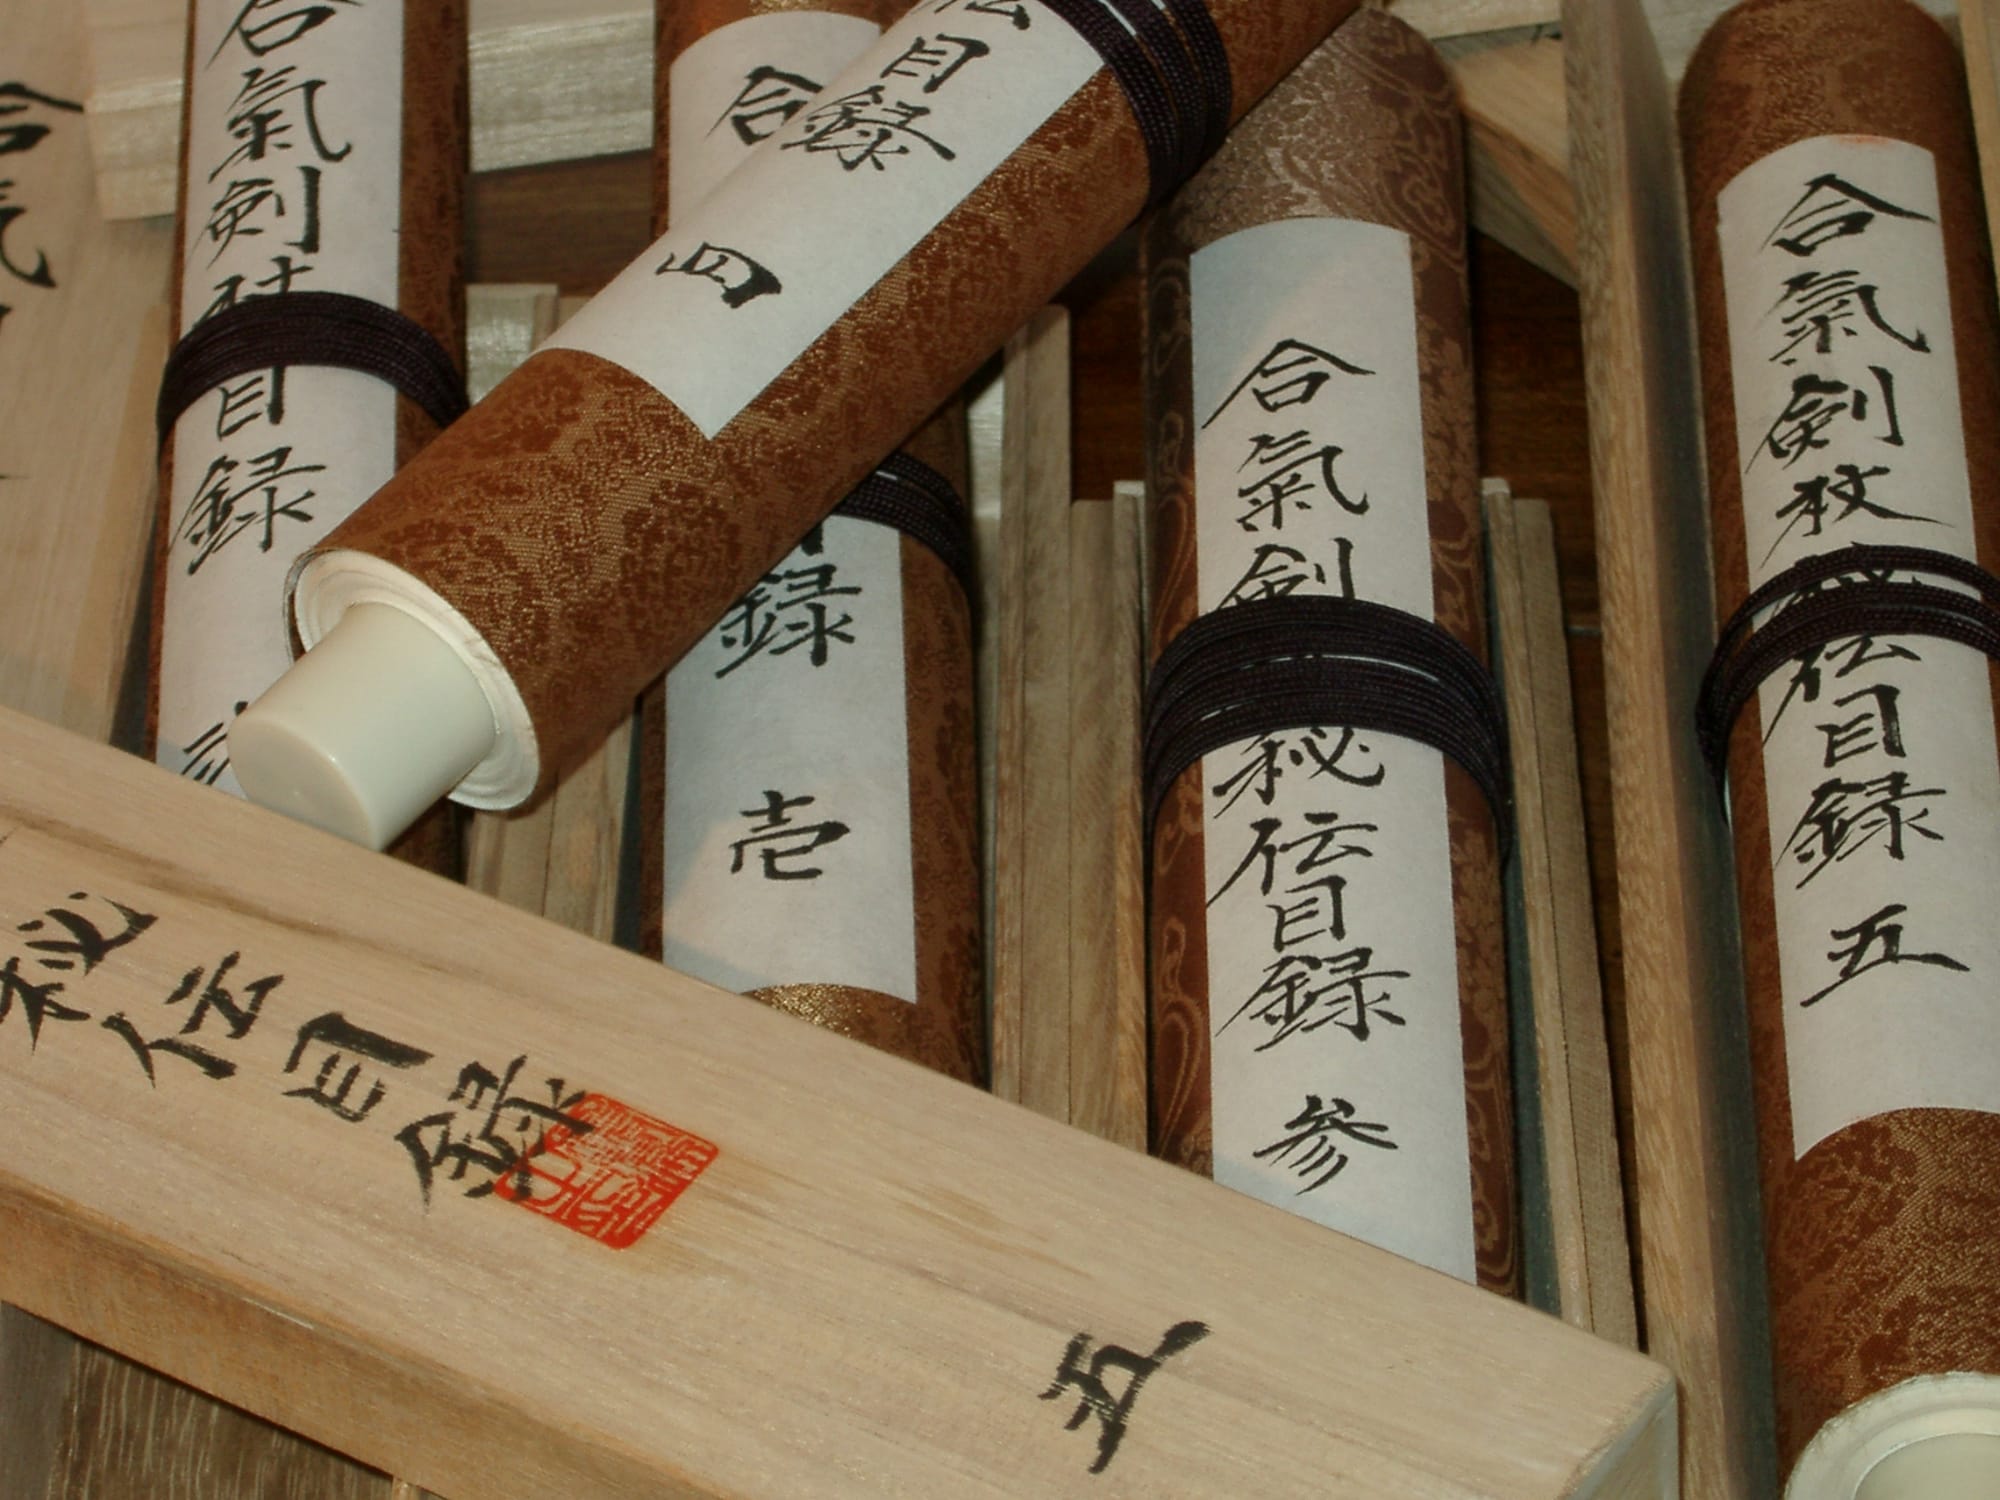 合氣剣杖目録
合
目録
四
録
壱
合氣剣
秘伝目録
参
合氣剣杖
伝目録
五
秘伝目録
五
合気